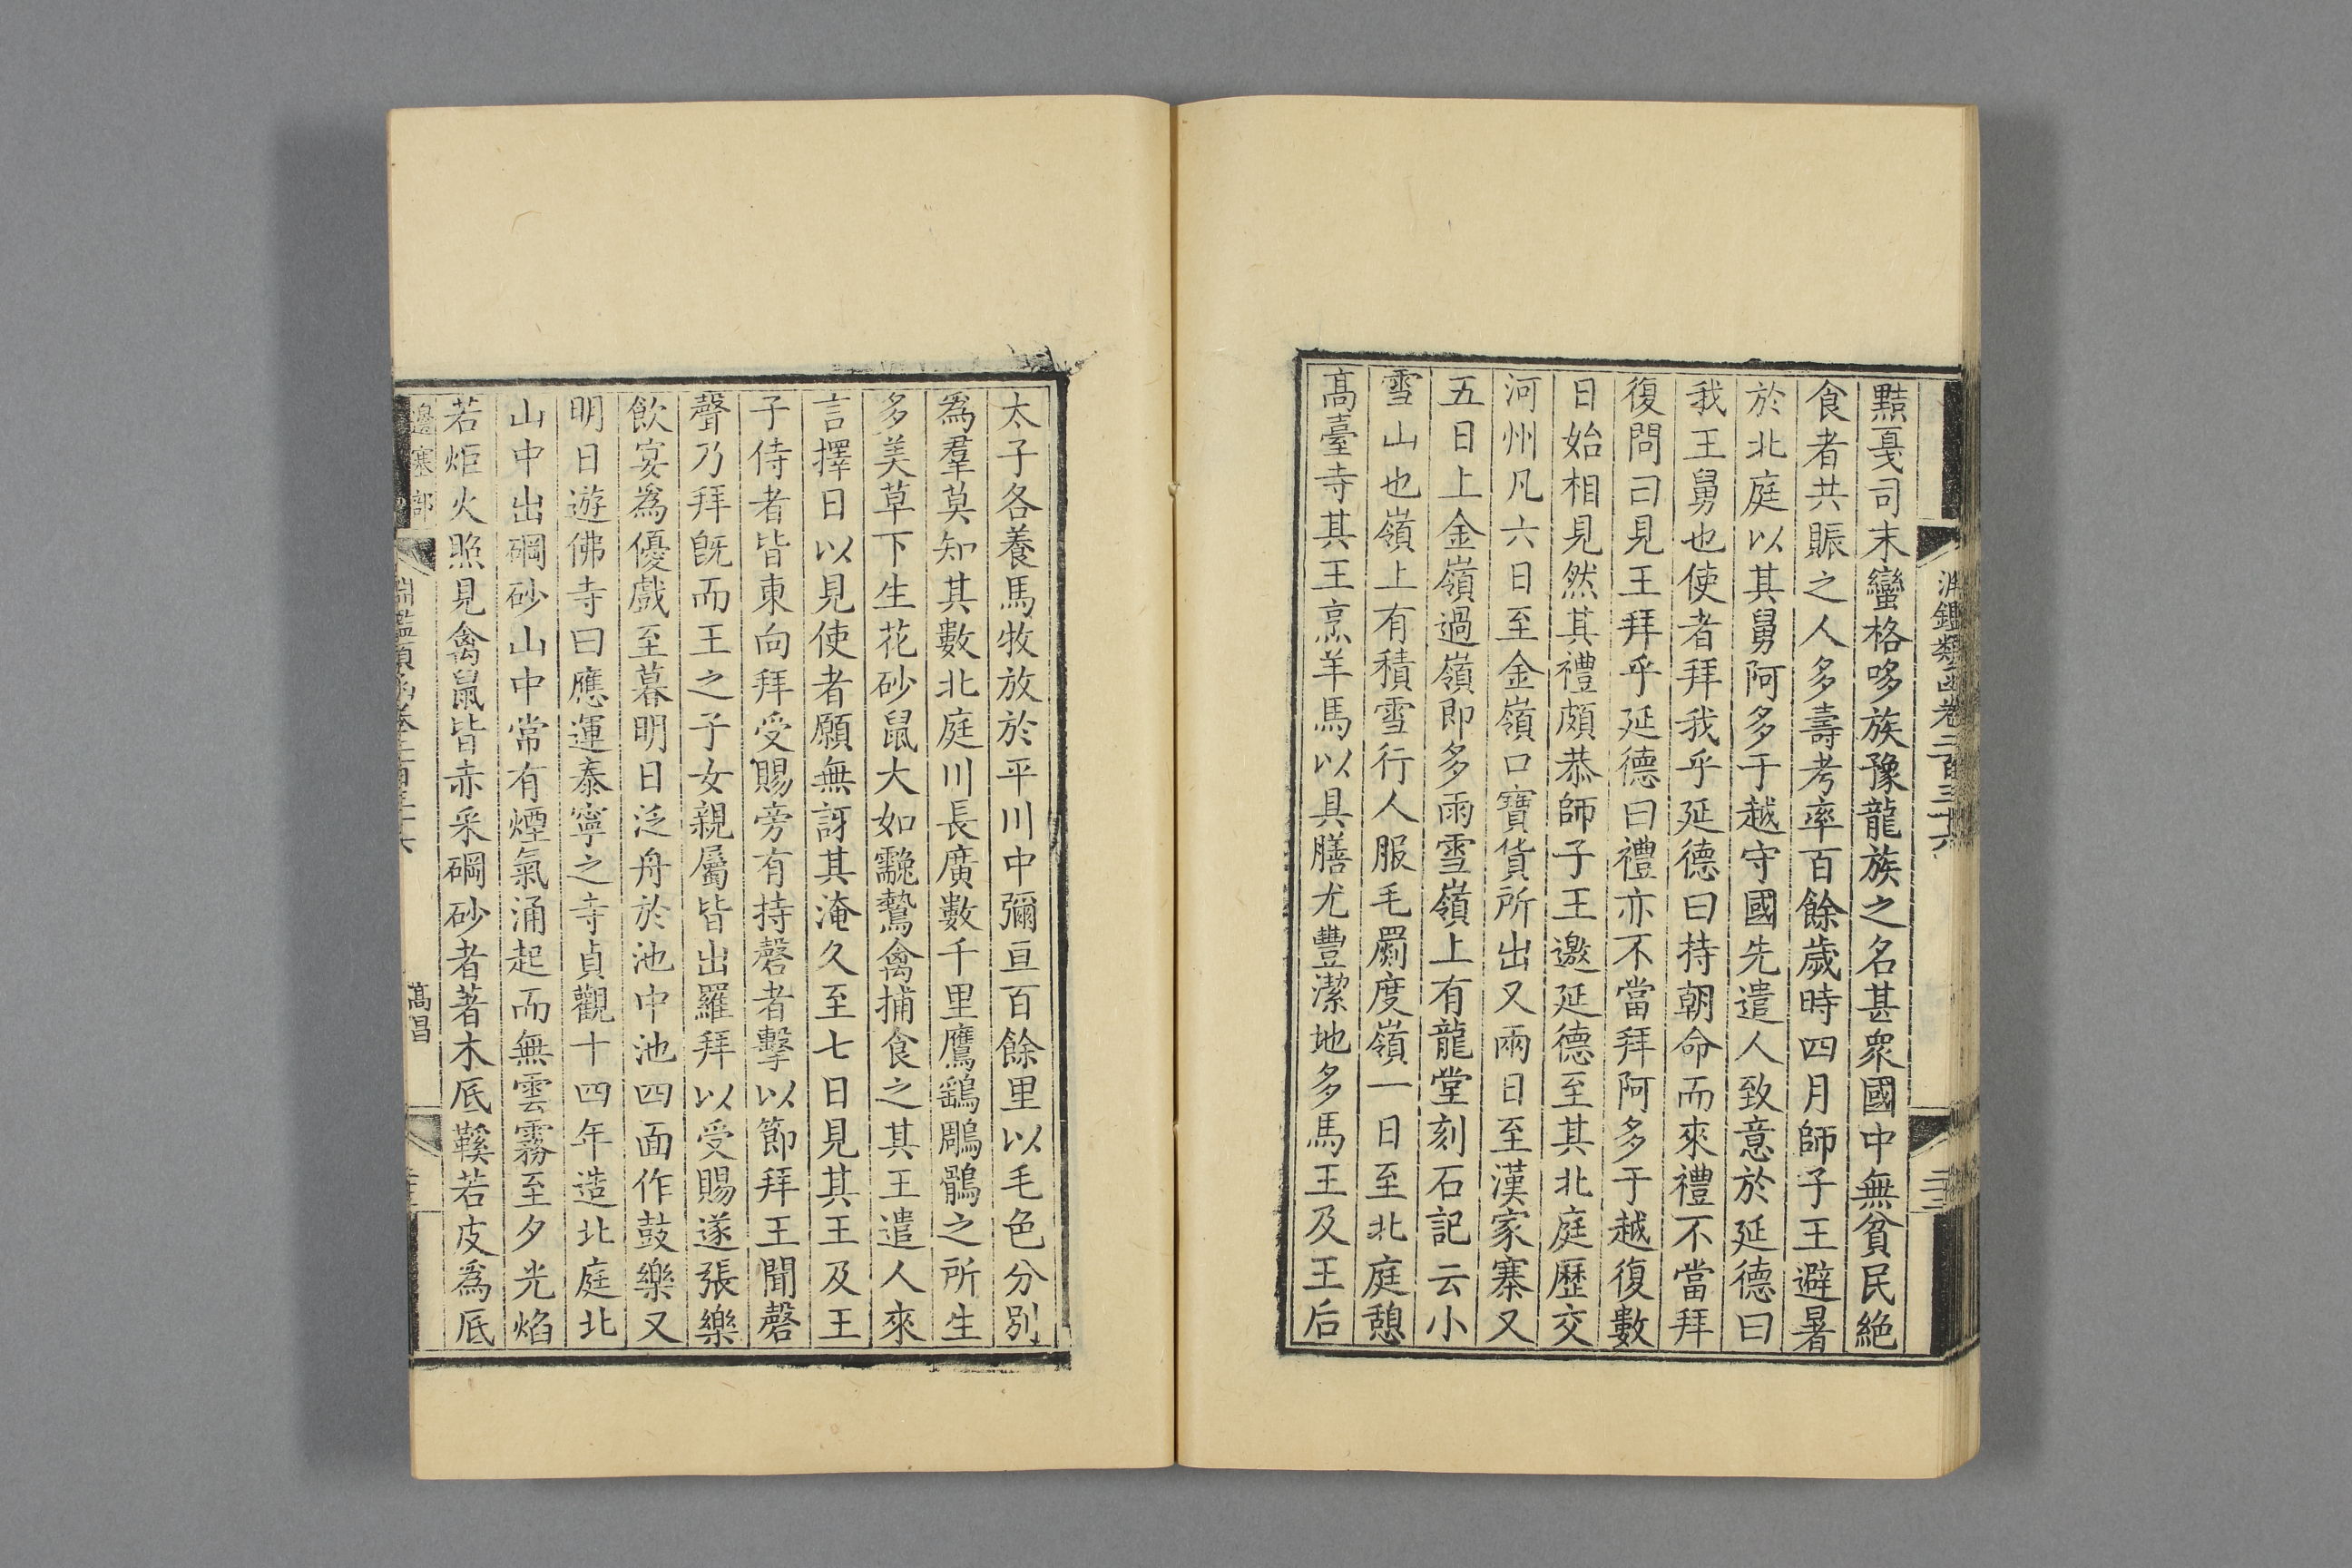 淵鑑類函卷二百三十六
黠戛司末蠻格哆族豫龍族之名甚衆國中無貧民絶
食者共賑之人多壽考率百餘歲時四月師子王避暑
於北庭以其舅阿多于越守國先遣人致意於延德曰
我王舅也使者拜我乎延德曰持朝命而來禮不當拜
復問曰見王拜乎延德曰禮亦不當拜阿多于越復數
日始相見然其禮頗恭師子王邀延德至其北庭歷交
河州凡六日至金嶺口寶貨所出又兩日至漢家寨又
五日上金嶺過嶺即多雨雪嶺上有龍堂刻石記云小
雪山也嶺上有積雪行人服毛罽度嶺一日至北庭憩
高臺寺其王烹羊馬以具膳尤豐潔地多馬王及王后
太子各養馬牧放於平川中彌亘百餘里以毛色分別
爲羣莫知其數北庭川長廣數千里鷹鷂鵰鶻之所生
多美草下生花砂鼠大如䨲鷙禽捕食之其王遣人來
言擇日以見使者願無訝其淹久至七日見其王及王
子侍者皆東向拜受賜旁有持磬者擊以節拜王聞磬
聲乃拜旣而王之子女親屬皆出羅拜以受賜遂張樂
飲宴爲優戲至暮明日泛舟於池中池四面作鼓樂又
明日遊佛寺曰應運泰寧之寺貞觀十四年造北庭北
山中出碙砂山中常有煙氣涌起而無雲霧至夕光焰
若炬火照見禽鼠皆赤采碙砂者著木底鞵若皮爲底
邊塞部
高昌